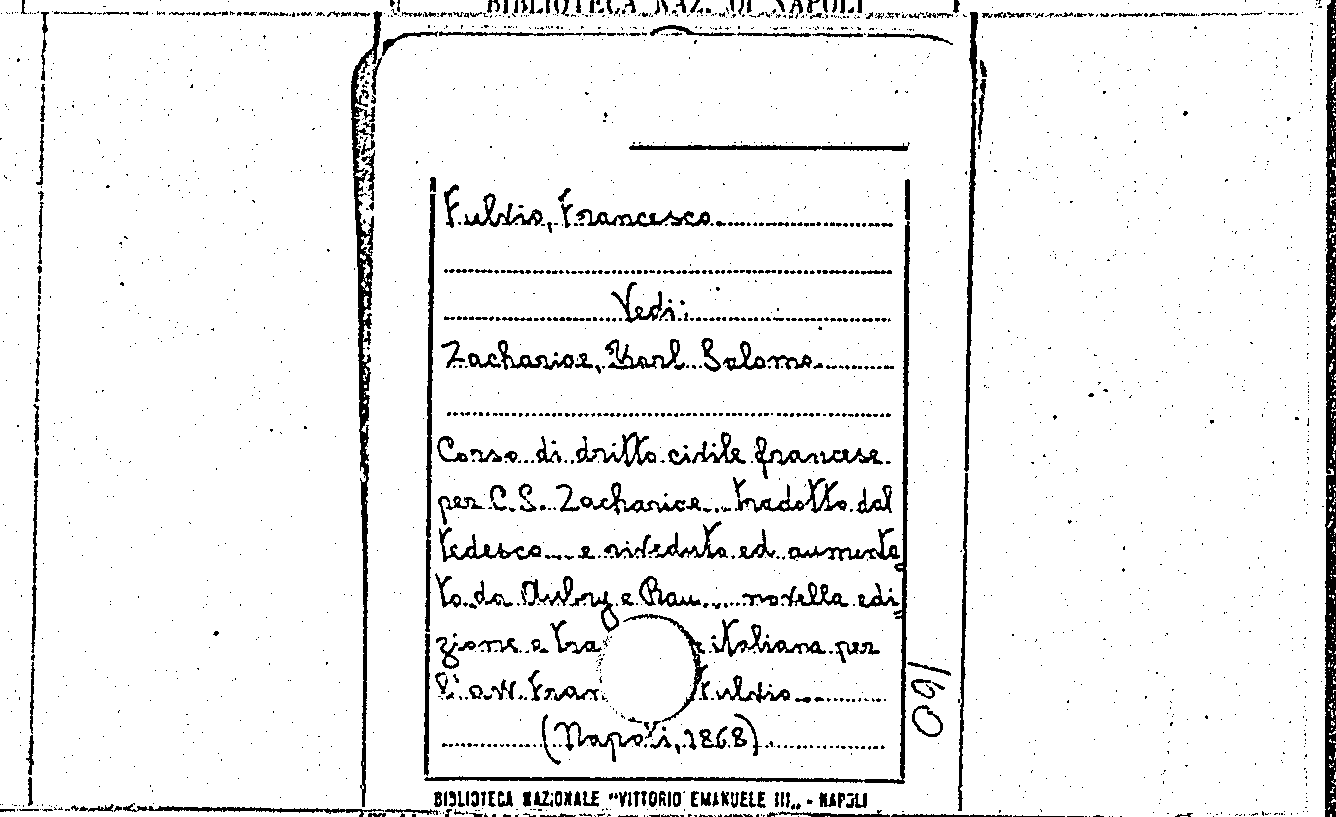 BIBLIOTECA NAZ. DI NAPOLI
Fulvio, Francesco
Vedi:
Zachariae, Karl Salomo
Corso di dritto civile francese
per C.S. Zachariae... tradotto dal
tedesco... e riveduto ed aumenta
to da Aubry e Rau... novella edi
zione e tra e italiana per
l'avv. Fran Fulvio
(Napoli, 1868)
160
BIBLIOTECA NAZIONALE "VITTORIO EMANUELE III„ - NAPOLI